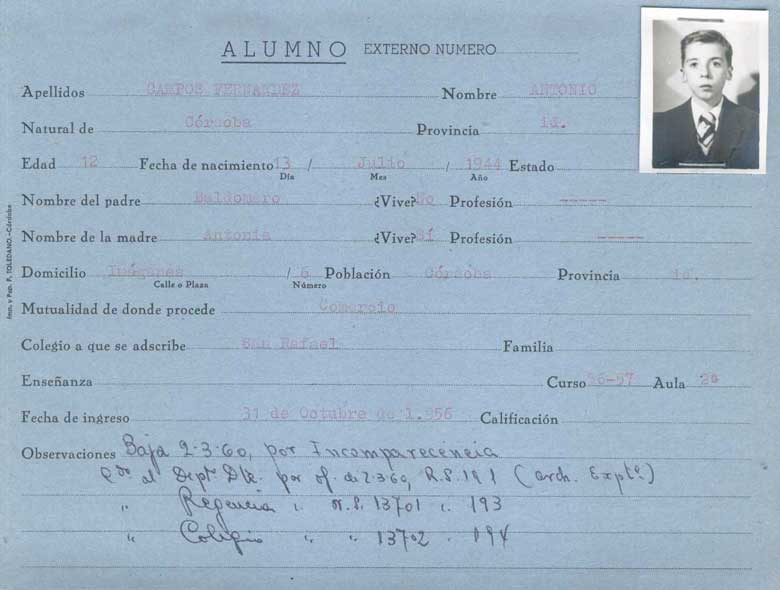 ALUMNO EXTERNO NUMERO
Apellidos CAMPOS FERNANDEZ Nombre ANTONIO
Natural de Córdoba Provincia id.
Edad 12 Fecha de nacimiento 13 / Julio / 1944 Estado
Día Mes Año
Nombre del padre Baldomero ¿Vive? No Profesión -----
Nombre de la madre Antonia ¿Vive? Sí Profesión -----
Domicilio / 6 Población Córdoba Provincia id.
Calle o Plaza Número
Mutualidad de donde procede Comercio
Colegio a que se adscribe San Rafael Familia
Enseñanza Curso 56-57 Aula 2ª
Fecha de ingreso 31 de Octubre de 1.956 Calificación
Observaciones Baja 2-3-60, por Incomparecencia
al Deptº Dte. por of. de 2-3-60, R.S. 191 (arch. Exptº)
" Regencia " R.S. 13701 " 193
" Colegio " " 13702 " 194
Imp. y Pap. F. TOLEDANO.-Córdoba